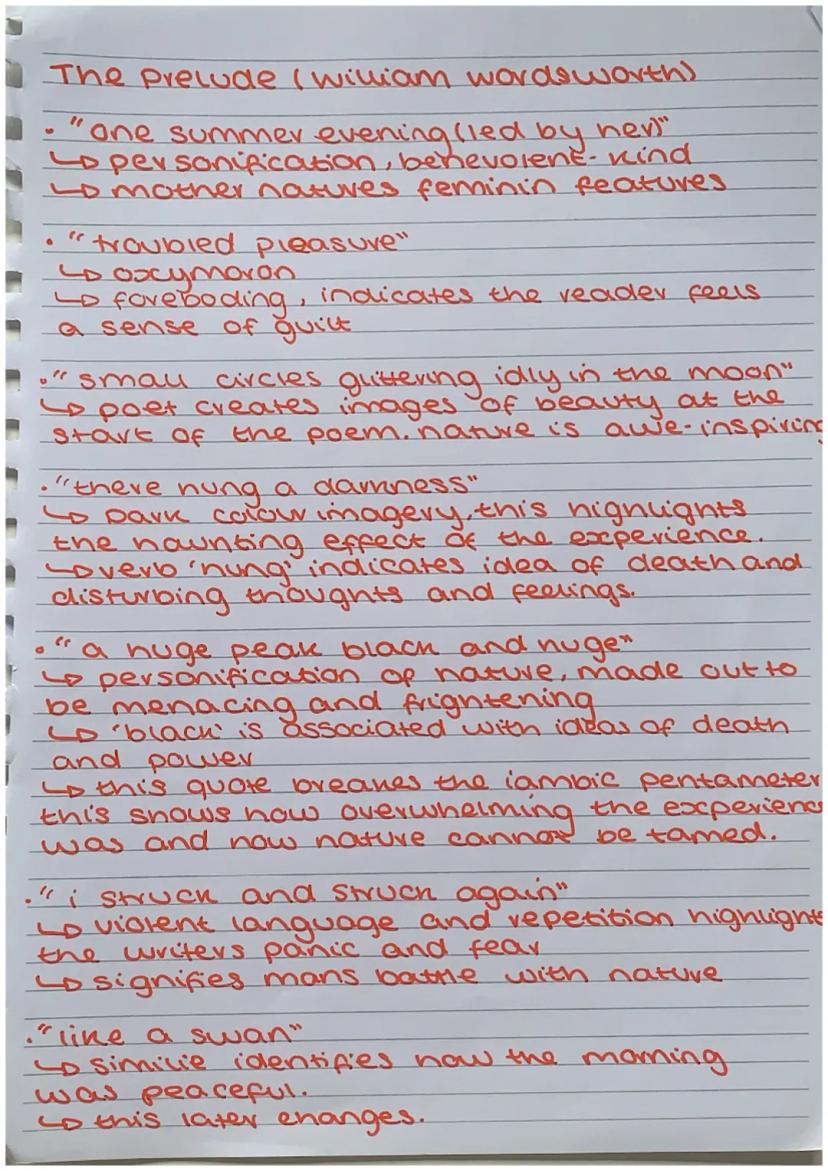 The prelude (william wordsworth)
• "one summer evening (led by her)"
↳ personification, benevolent - kind
↳ mother natures feminin features
• "troubled pleasure"
↳ oxymoron
↳ foreboding, indicates the reader feels
a sense of guilt
• "small circles glittering idly in the moon"
↳ poet creates images of beauty at the
start of the poem. nature is awe-inspiring
• "there hung a darkness"
↳ Dark colour imagery, this highlights
the haunting effect of the experience.
↳ verb 'hung' indicates idea of death and
disturbing thoughts and feelings.
• "a huge peak black and huge"
↳ personification of nature, made out to
be menacing and frightening
↳ 'black' is associated with ideas of death
and power
↳ this quote breakes the iambic pentameter
this shows how overwhelming the experienc
was and how nature cannot be tamed.
• "i struck and struck again"
↳ violent language and repetition highlight
the writers panic and fear
↳ signifies mans battle with nature
• "like a swan"
↳ similie identifies how the morning
was peaceful.
↳ this later changes.